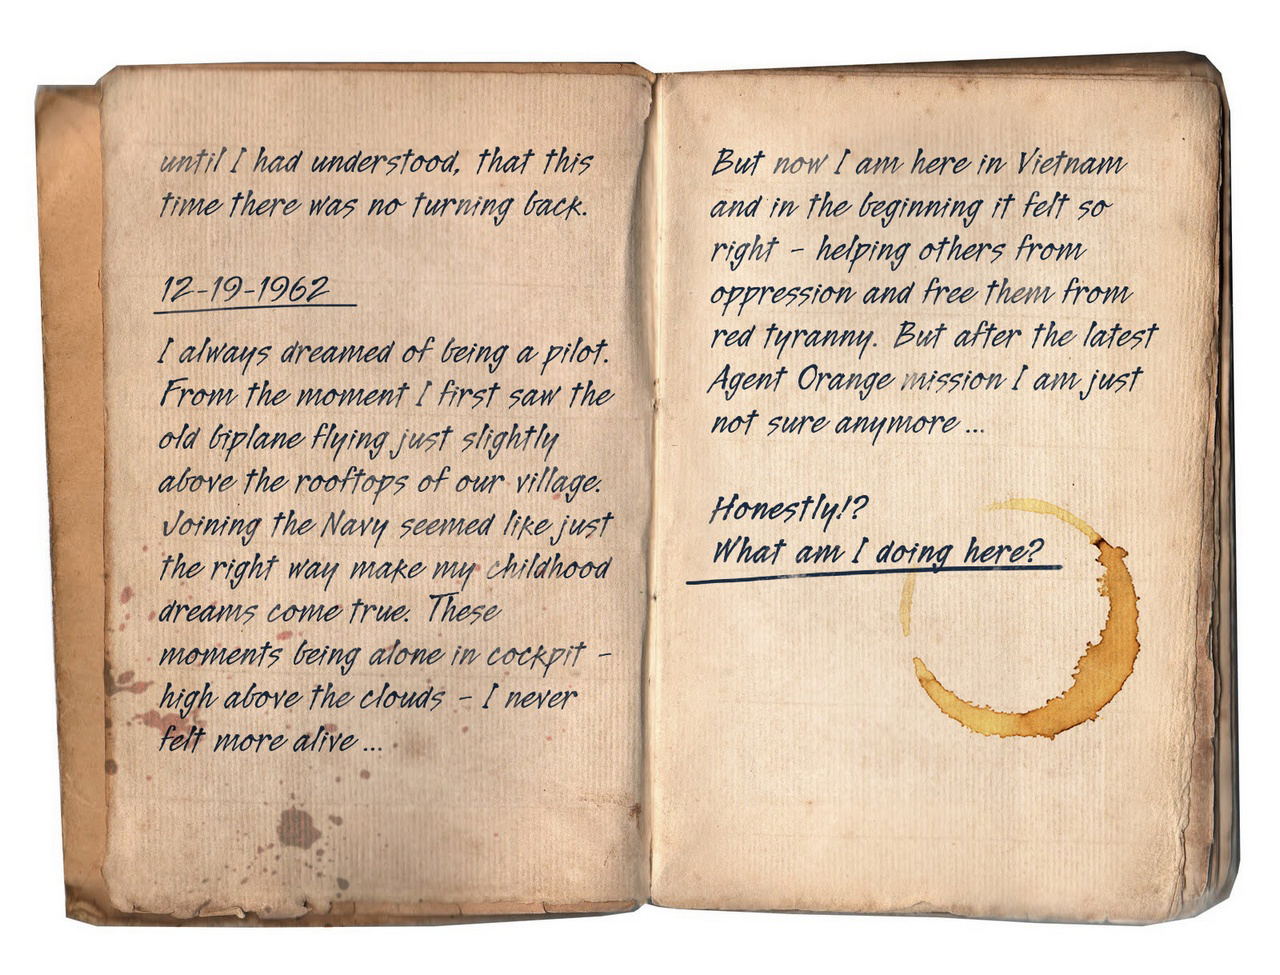 until I had understood, that this
time there was no turning back.
12-19-1962
I always dreamed of being a pilot.
From the moment I first saw the
old biplane flying just slightly
above the rooftops of our village.
Joining the Navy seemed like just
the right way make my childhood
dreams come true. These
moments being alone in cockpit -
high above the clouds - I never
felt more alive ...
But now I am here in Vietnam
and in the beginning it felt so
right - helping others from
oppression and free them from
red tyranny. But after the latest
Agent Orange mission I am just
not sure anymore ...
Honestly!?
What am I doing here?